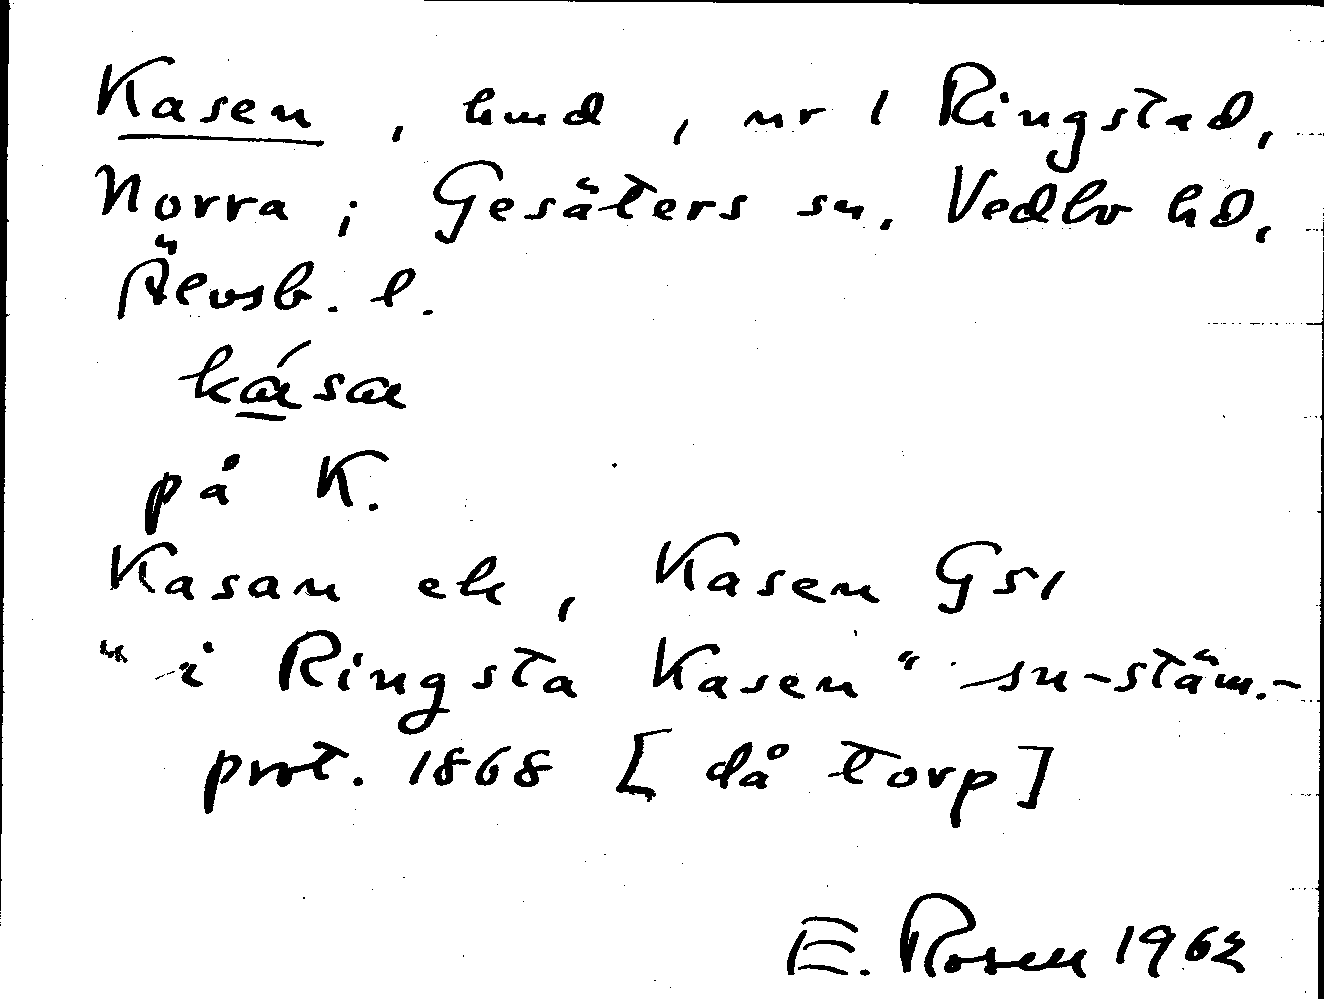 Kasen, hmd, nr 1 Ringstad,
Norra; Gesäters sn. Vedbo hd,
Älvsb. l.
ká̱sa
på K.
Kasan ek, Kasen Gs1
"i Ringsta Kasen" sn-stäm.-
prot. 1868 [då torp]
E. Rosen 1962